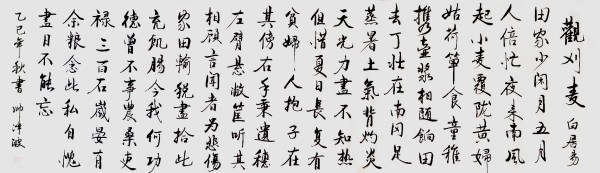 觀刈麦 白居易
田家少闲月五月
人倍忙夜来南風
起小麦覆陇黄婦
姑荷箪食童稚
携壺浆相随餉田
去丁壮在南冈足
蒸暑土氣背灼炎
天光力盡不知熱
但惜夏日長复有
貧婦人抱子在
其傍右手秉遺穗
左臂悬敝筐听其
相顾言闻者为悲傷
家田输税盡拾此
充飢腸今我何功
德曾不事農桑吏
禄三百石歲晏有
余粮念此私自愧
盡日不能忘
乙巳年秋書